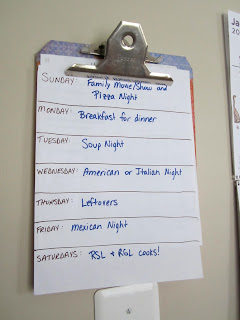 SUNDAY: Family Movie/Show and
Pizza Night
MONDAY: Breakfast for dinner
TUESDAY: Soup Night
WEDNESDAY: American or Italian Night
THURSDAY: Leftovers
FRIDAY: Mexican Night
SATURDAYS: RSL & RGL cooks!
Ja
20